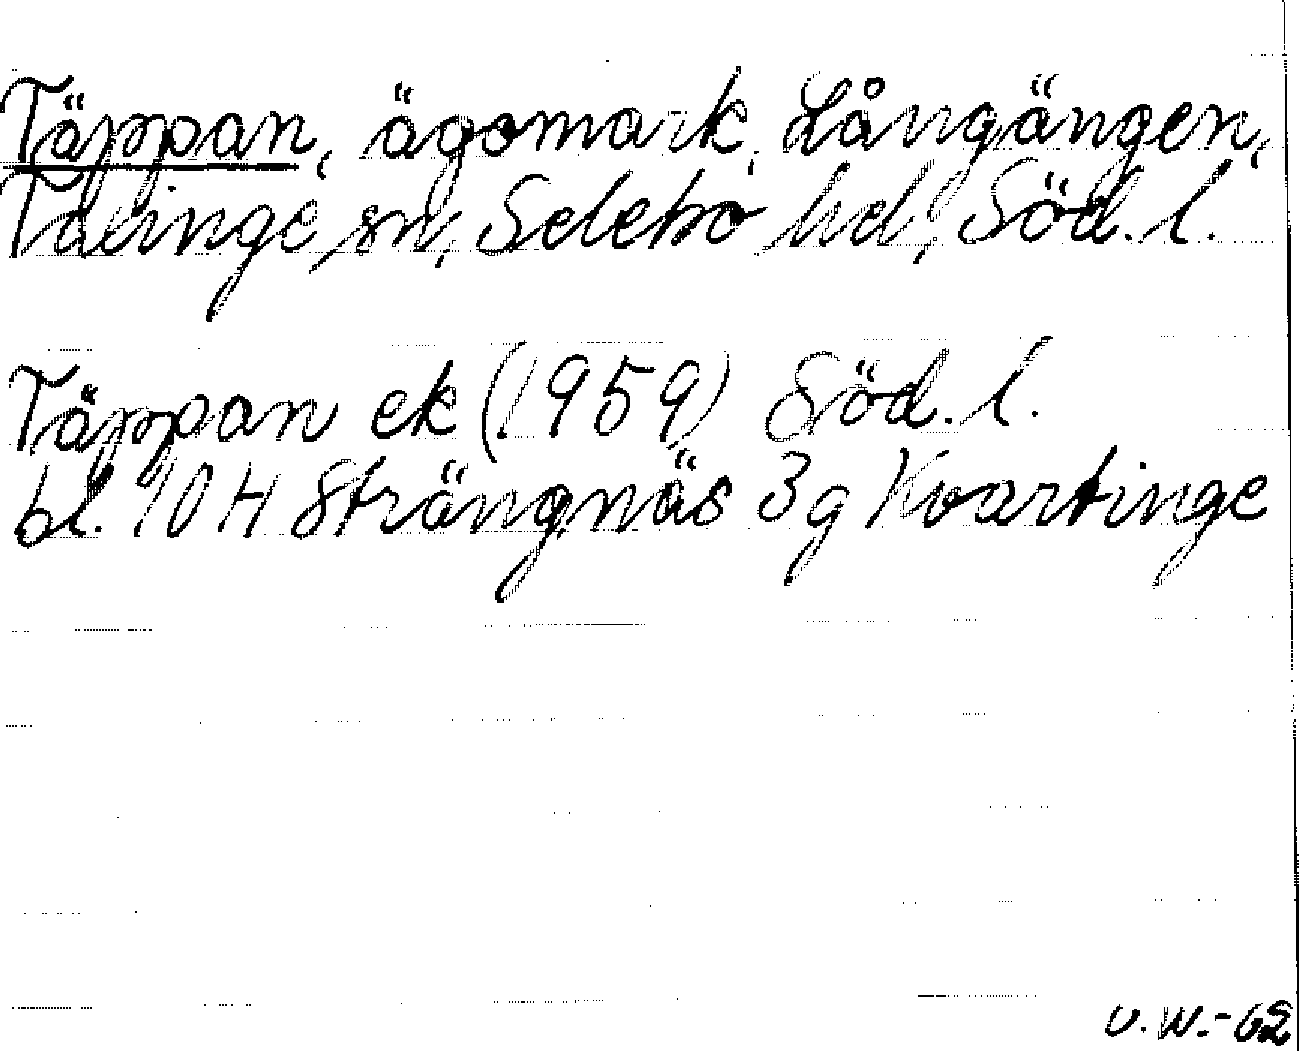 Täppan, ägomark, Långängen,
Taxinge sn, Selebo hd, Söd. l.
Täppan ek (1959) Söd. l.
bl. 10 H Strängnäs 3g Kvartinge
U. W. - 62